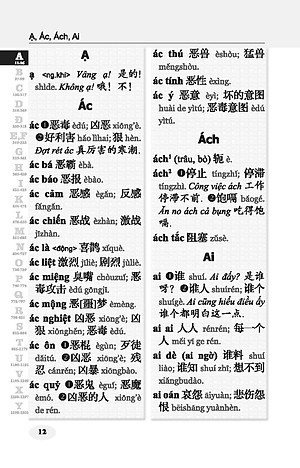 Ạ, Ác, Ách, Ai
A
B
C
D
Đ
E,F
G
H
I
K
L
M
N
O
P
Q
R
S
T
U
V
X
Y
Ạ
ạ <ng.khí> Vâng ạ! 是的!
shìde. Không ạ! 哦! 不!
Ác
ác ❶恶毒 èdú; 凶恶 xiōng'è.
❷好利害 hǎo lìhai; 狠 hěn.
Đợt rét ác 真厉害的寒潮.
ác bá 恶霸 èbà.
ác báo 恶报 èbào.
ác cảm 恶感 ègǎn; 反感
fǎngǎn.
ác chiến 恶战 èzhàn; 激战
jīzhàn.
ác là <động> 喜鹊 xǐquè.
ác liệt 激烈 jīliè; 剧烈 jùliè.
ác miệng 臭嘴 chòuzuǐ; 恶
毒攻击 èdú gōngjī.
ác mộng 恶[噩]梦 èmèng.
ác nghiệt 凶恶 xiōng'è; 凶
狠 xiōnghěn; 恶毒 èdú.
ác ôn ❶恶棍 ègùn; 歹徒
dǎitú. ❷凶恶 xiōng'è; 残
忍 cánrěn; 凶暴 xiōngbào.
ác quỷ ❶恶鬼 èguǐ; 恶魔
èmó. ❷凶恶的人 xiōng'è
de rén.
ác thú 恶兽 èshòu; 猛兽
měngshòu.
ác tính 恶性 èxìng.
ác ý 恶意 èyì; 坏的意图
huài de yìtú; 恶毒意图 èdú
yìtú.
Ách
ách¹ (trâu, bò) 轭 è.
ách² ❶停止 tíngzhǐ; 停滞
tíngzhì. Công việc ách 工作
停滞不前. ❷饱嗝 bǎogé.
Ăn no ách cả bụng 吃得饱
嗝.
ách tắc 阻塞 zǔsè.
Ai
ai ❶谁 shuí. Ai đấy? 是谁
呀? ❷谁人 shuírén; 谁个
shuígè. Ai cũng hiểu điều ấy
谁个都明白这一点.
ai ai 人人 rénrén; 每一个
人 měi yī ge rén.
ai dè (ai ngờ) 谁料 shuí
liào; 谁知 shuí zhī; 想不到
xiǎngbudào.
ai oán 哀怨 āiyuàn; 悲伤怨
恨 bēishāng yuànhèn.
12